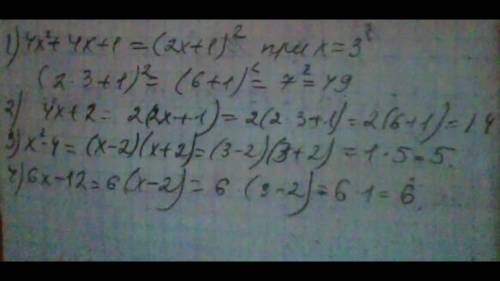 1) 4x²+4x+1 = (2x+1)² при x=3
(2·3+1)² = (6+1)² = 7² = 49
2) 4x+2 = 2(2x+1) = 2(2·3+1) = 2(6+1) = 14
3) x²-4 = (x-2)(x+2) = (3-2)(3+2) = 1·5 = 5.
4) 6x-12 = 6(x-2) = 6 (3-2) = 6·1 = 6.